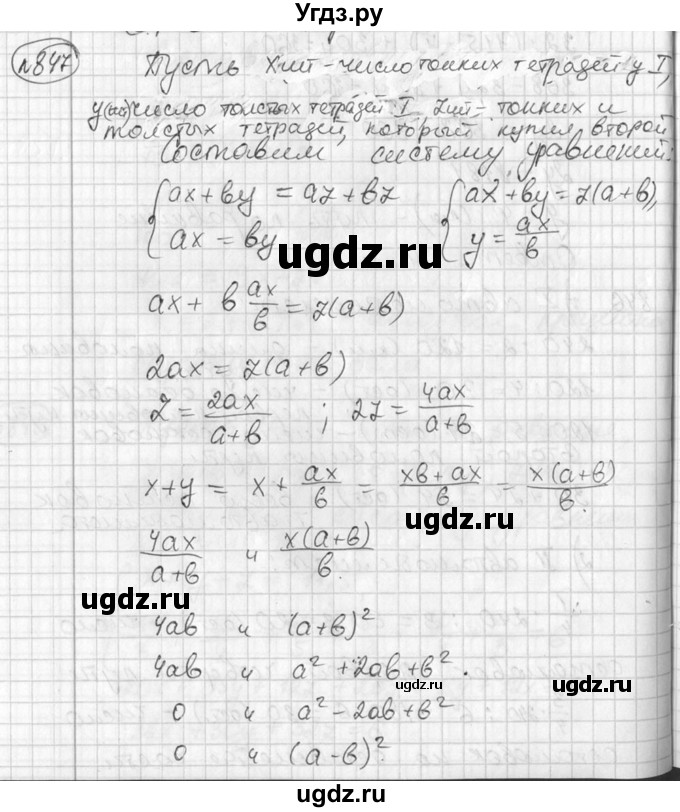 Угдз.ру
№847
Пусть x шт – число тонких тетрадей у I,
y(шт) число толстых тетрадей I zшт – тонких и
толстых тетрадей, который купил второй
Составим систему уравнений:
{ax + by = az + bz {ax + by = z(a+b),
{ax = by {y = ax/b
ugdz.ru
ax + b ax/b = z(a+b)
2ax = z(a+b)
z = 2ax/(a+b) ; 2z = 4ax/(a+b)
ugdz.ru
x+y = x + ax/b = (xb + ax)/b = x(a+b)/b.
ugdz.ru
4ax/(a+b) и x(a+b)/b.
ugdz.ru
4ab и (a+b)²
4ab и a² + 2ab + b².
ugdz.ru
0 и a² – 2ab + b²
0 и (a – b)².
ugdz.ru
Угдз.ру